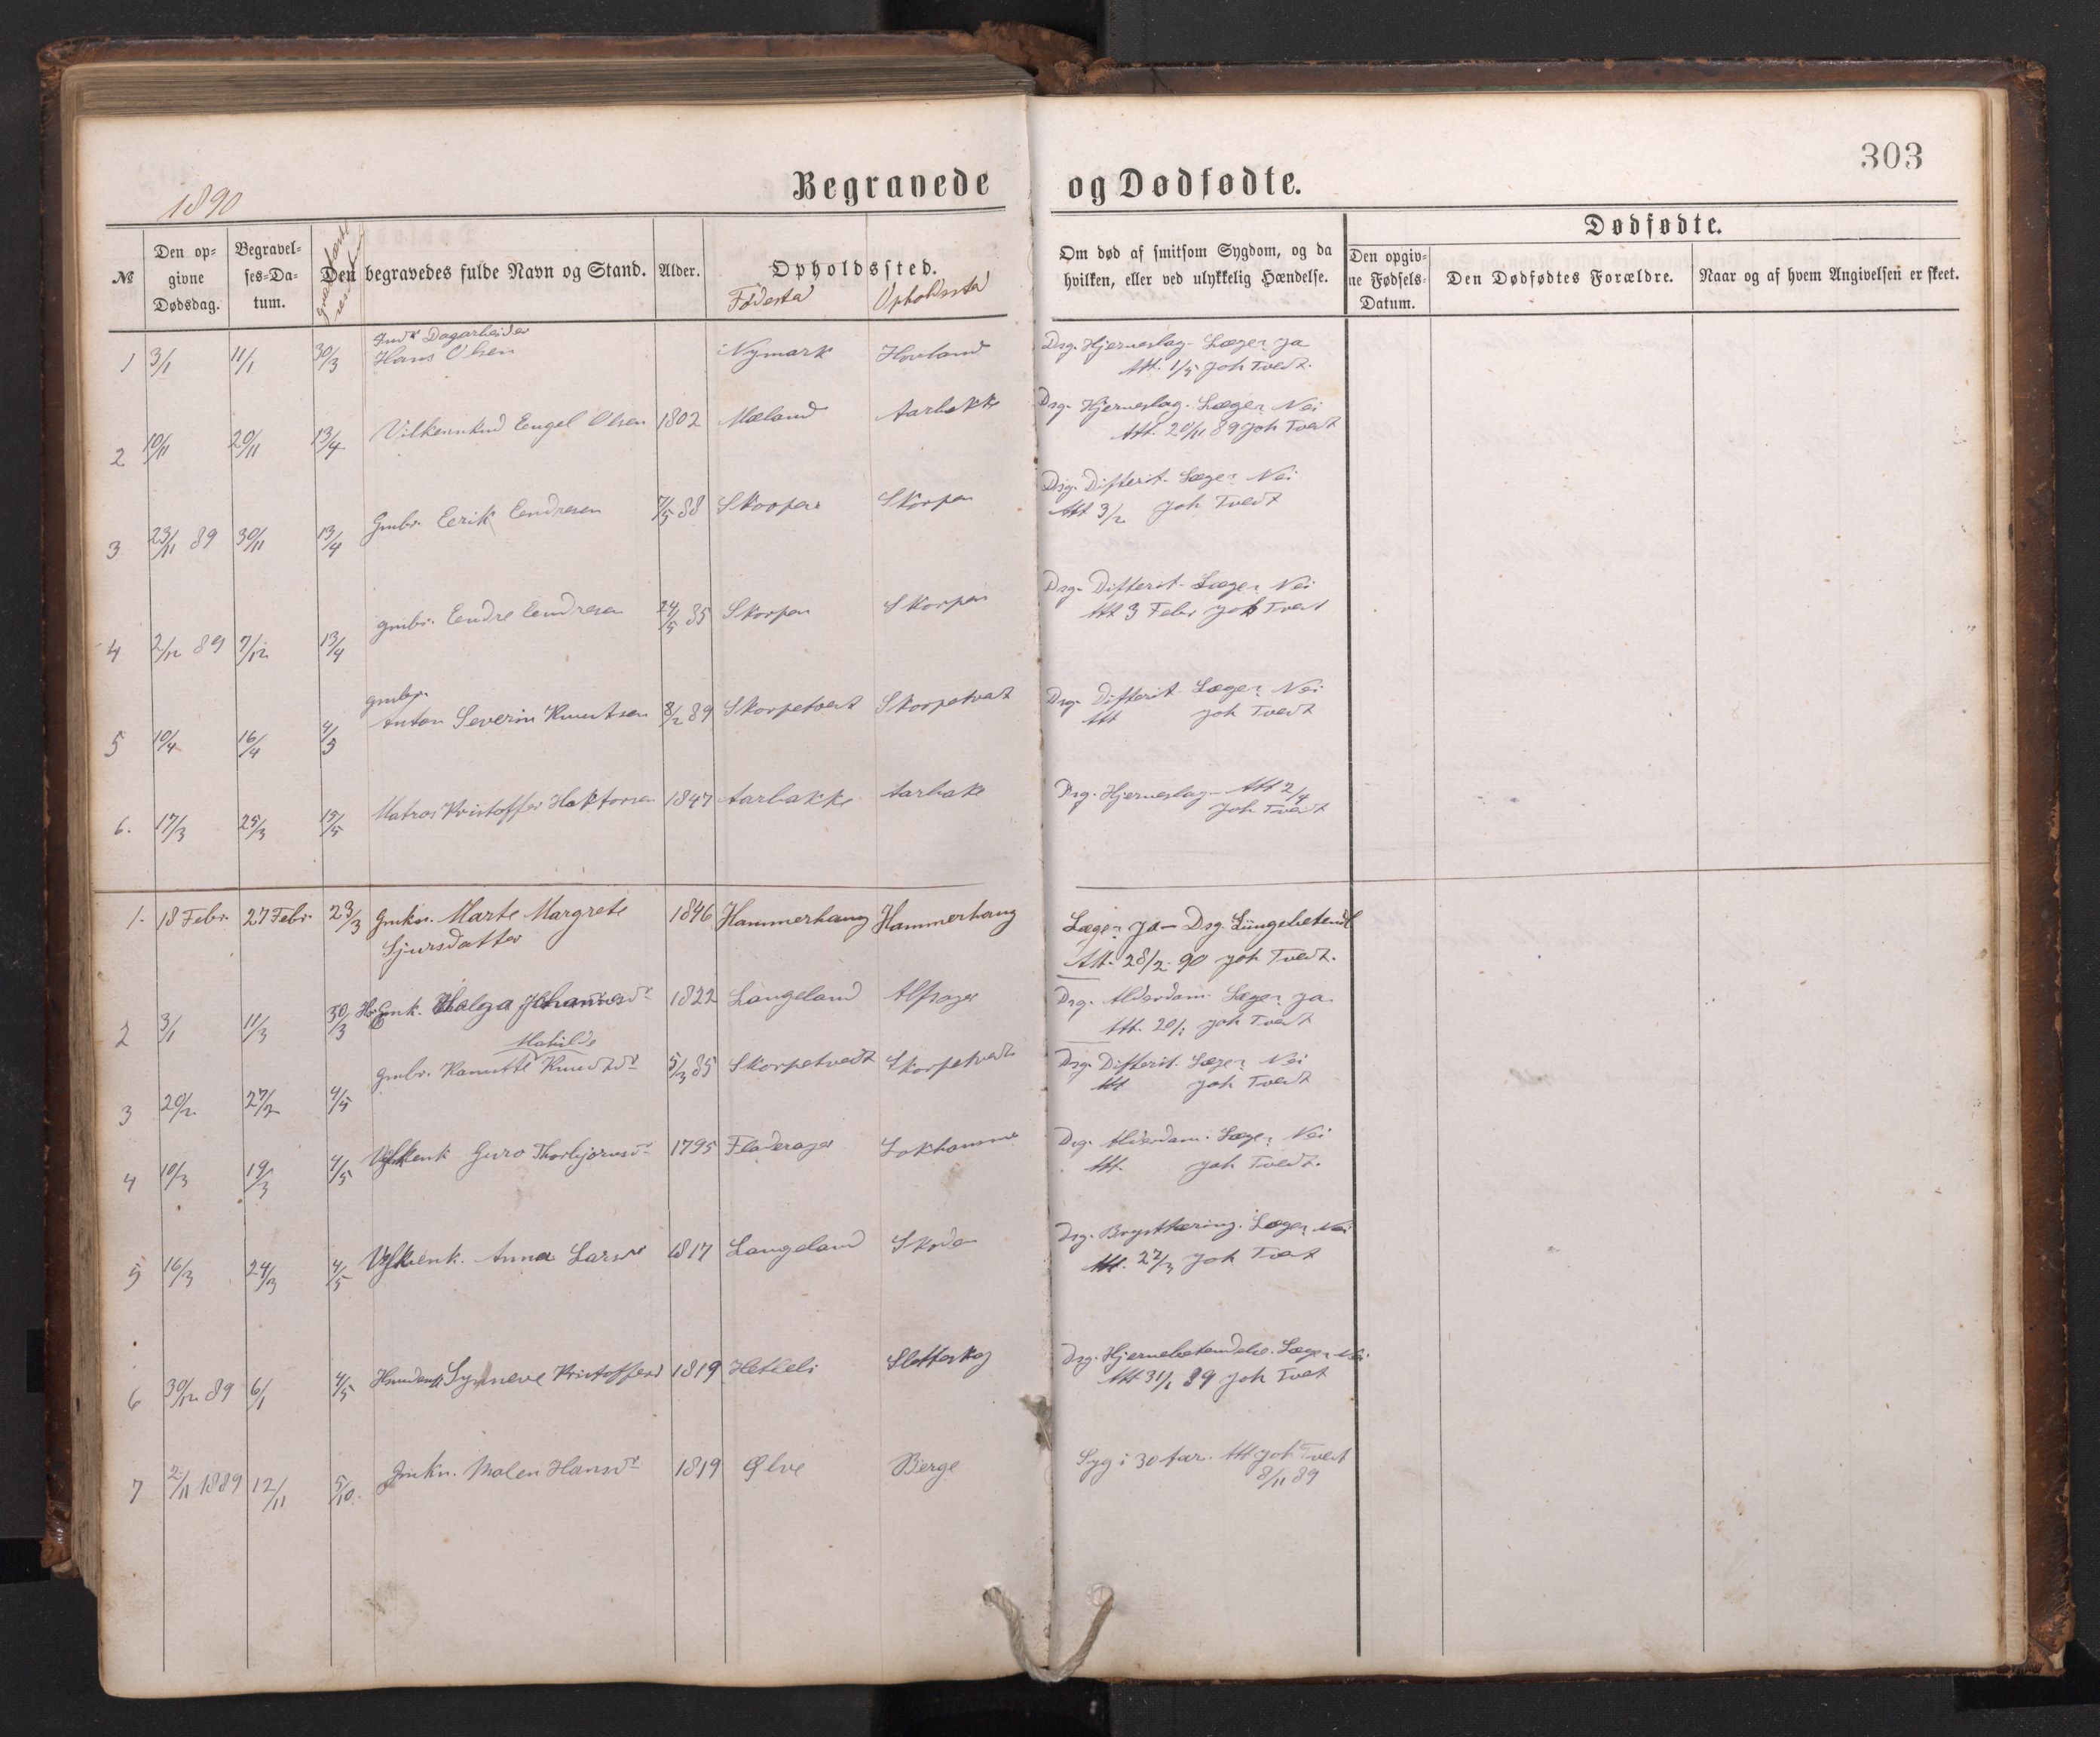 303
Begravede og Dødfødte.
1890
№
Den op-
givne
Dødsdag.
Begravel-
ses-Da-
tum.
Den begravedes fulde Navn og Stand.
Alder.
Opholdssted.
Fødested Opholdssted
Om død af smitsom Sygdom, og da
hvilken, eller ved ulykkelig Hændelse.
Dødfødte.
Den opgiv-
ne Fødsels-
Datum.
Den Dødfødtes Forældre.
Naar og af hvem Angivelsen er skeet.
Inds Dagarbeider
1 3/1 11/1 30/3 Hans Olsen Nymark Hovland Dsg. Hjerneslag- Læge? Ja
Att. 1/5 Joh Tvedt.
2 10/11 20/11 13/4 Engel Olsen 1802 Mæland Aarbakke Dsg. Hjerneslag. Læge? Nei
Att. 20/11 89 Joh Tvedt
3 23/11 89 30/11 13/4 Gmbr. Eerik Eendresen 7/5 88 Skorpen Skorpen Dsg. Difterit- Læge? Nei
Att 3/2 Joh Tvedt
4 2/12 89 7/12 13/4 gmbr. Eendre Eendresen 24/5 85 Skorpen Skorpen Dsg. Difterit- Læge? Nei
Att 3 Febr Joh Tvedt
gmbr.
5 10/4 16/4 4/5 Anton Severin Knutsen 8/2 89 Skorpetvedt Skorpetvedt Dsg. Difterit Læge? Nei
Att Joh Tvedt
6. 17/3 25/3 15/5 Matros Kristoffer Haktorsen 1847 Aarbakke Aarbake Dsg. Hjerneslag- Att 2/4
Joh Tvedt
1. 18 Febr. 27 Febr. 23/3 Gmkn. Marte Margrete 1846 Hammerhaug Hammerhaug Læge? Ja- Dsg. Lungebetendl
Sjursdatter Att. 28/2 90 Joh Tvedt.
2 3/1 11/3 30/3 Helga Johannesdr 1822 Langeland Alsager Dsg. Alderdom- Læge? Ja
Att. 20/1 Joh Tvedt
Mathilde
3 20/2 27/2 4/5 gmbr. Kanutte Knudtdr 5/3 85 Skorpetvedt Skorpetvedt Dsg. Difterit. Læge? Nei
Att Joh Tvedt
4 10/3 19/3 4/5 Guro Thorbjørnsdr 1795 Fladerager Dsg. Alderdom. Læge? Nei
Att. Joh Tvedt.
5 16/3 24/3 4/5 Anna Larsdr 1817 Langeland Dsg. Brysttæring. Læge? Nei
Att. 27/3 Joh Tvedt
6 30/12 89 6/1 4/5 Synneve Kristoffersd 1819 Hetleli Sletteskog Dsg. Hjernebetendelse. Læge? Nei
Att 31/1 89 Joh Tvet
7 2/11 1889 12/11 5/10. Gmkn. Malen Hansdr 1819 Ølve Berge Syg i 30 Aar. Att Joh Tvedt
8/11 89